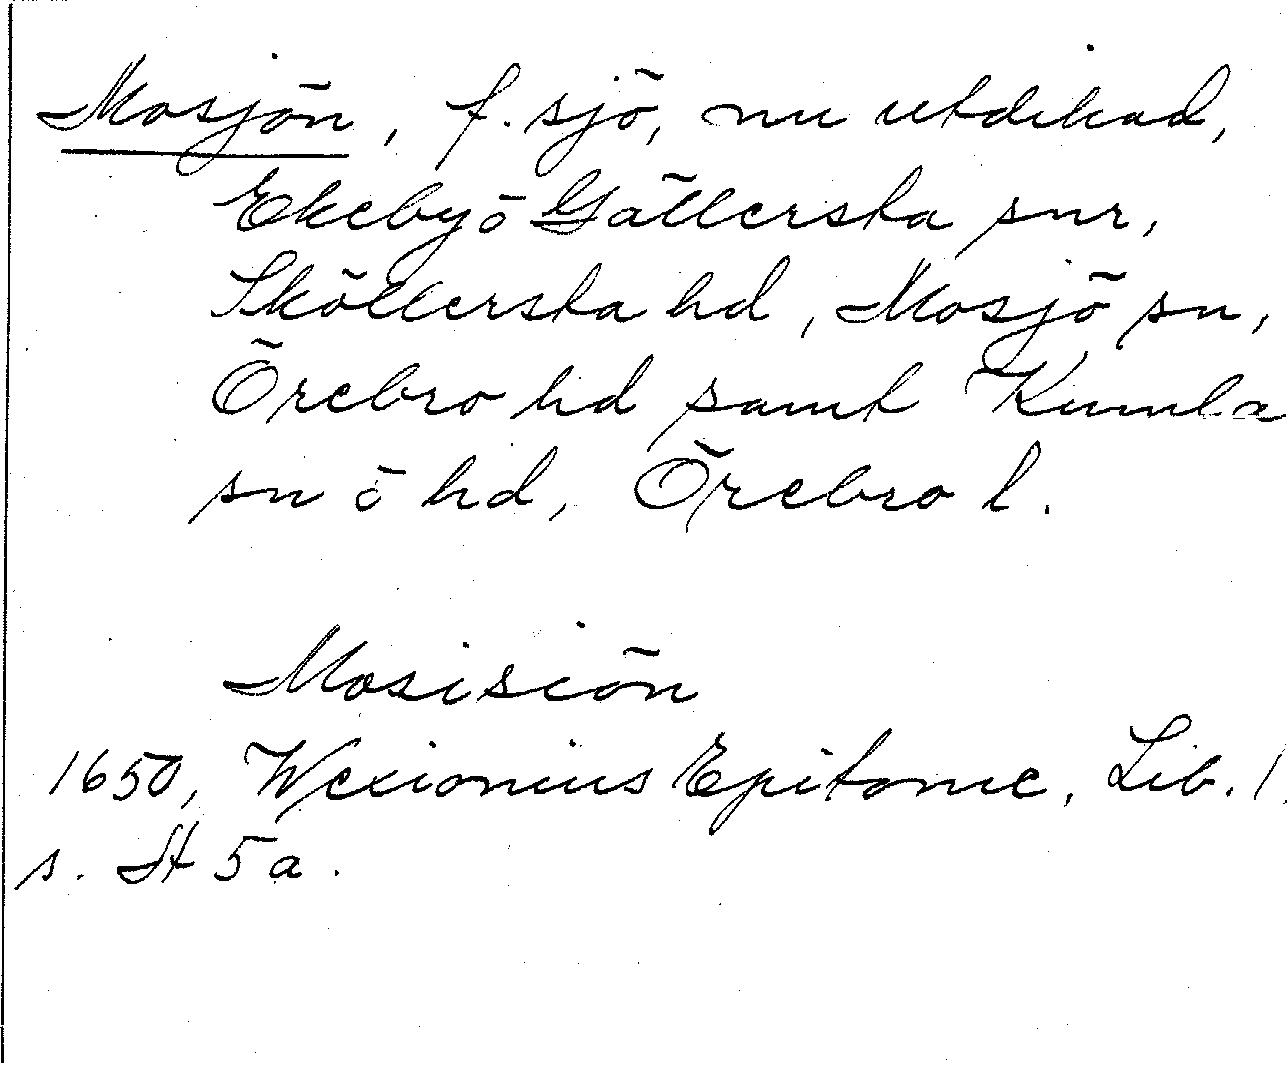 Mosjön, f. sjö, nu utdikad,
Ekeby o Gällersta snr,
Sköllersta hd, Mosjö sn,
Örebro hd samt Kumla
sn o hd, Örebro l.
Mosisiön
1650, Wexionius Epitome, Lib. 1,
s. H 5 a.